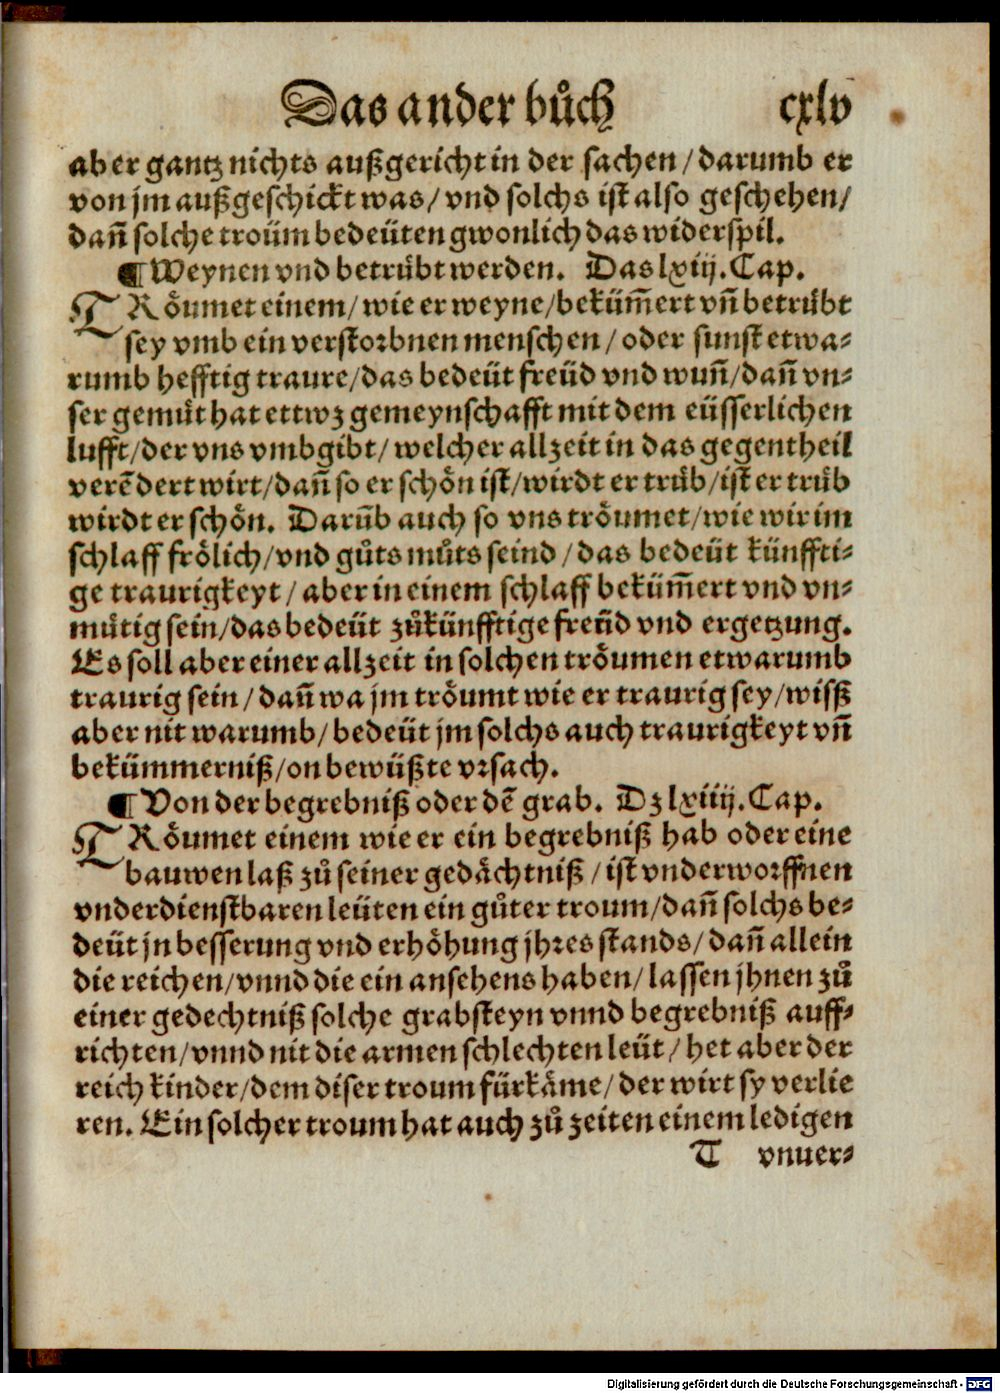 Das ander bůch cxlv
aber gantz nichts außgericht in der sachen / darumb er
von jm außgeschickt was / vnd solchs ist also geschehen /
dañ solche troüm bedeüten gwonlich das widerspil.
¶ Weynen vnd betrůbt werden. Das lxiij. Cap.
TRöumet einem / wie er weyne / beküm̃ert vñ betrůbt
sey vmb ein verstorbnen menschen / oder sunst etwa⸗
rumb hefftig traure / das bedeüt freüd vnd wuñ / dañ vn⸗
ser gemůt hat ettwz gemeynschafft mit dem eüsserlichen
lufft / der vns vmbgibt / welcher allzeit in das gegentheil
verẽdert wirt / dañ so er schön ist / wirdt er trůb / ist er trůb
wirdt er schön. Darũb auch so vns tröumet / wie wir im
schlaff frölich / vnd gůts můts seind / das bedeüt künffti⸗
ge traurigkeyt / aber in einem schlaff beküm̃ert vnd vn⸗
můtig sein / das bedeüt zůkünfftige freüd vnd ergetzung.
Es soll aber einer allzeit in solchen tröumen etwarumb
traurig sein / dañ wa jm tröumt wie er traurig sey / wisß
aber nit warumb / bedeüt jm solchs auch traurigkeyt vñ
bekümmerniß / on bewüßte vrsach.
¶ Von der begrebniß oder dẽ grab. Dz lxiiij. Cap.
TRöumet einem wie er ein begrebniß hab oder eine
bauwen laß zů seiner gedächtniß / ist vnderworffnen
vnderdienstbaren leüten ein gůter troum / dañ solchs be⸗
deüt jn besserung vnd erhöhung jhres stands / dañ allein
die reichen / vnnd die ein ansehens haben / lassen jhnen zů
einer gedechtniß solche grabsteyn vnnd begrebniß auff⸗
richten / vnnd nit die armen schlechten leüt / het aber der
reich kinder / dem diser troum fürkäme / der wirt sy verlie
ren. Ein solcher troum hat auch zů zeiten einem ledigen
T vnuer⸗
Digitalisierung gefördert durch die Deutsche Forschungsgemeinschaft - DFG